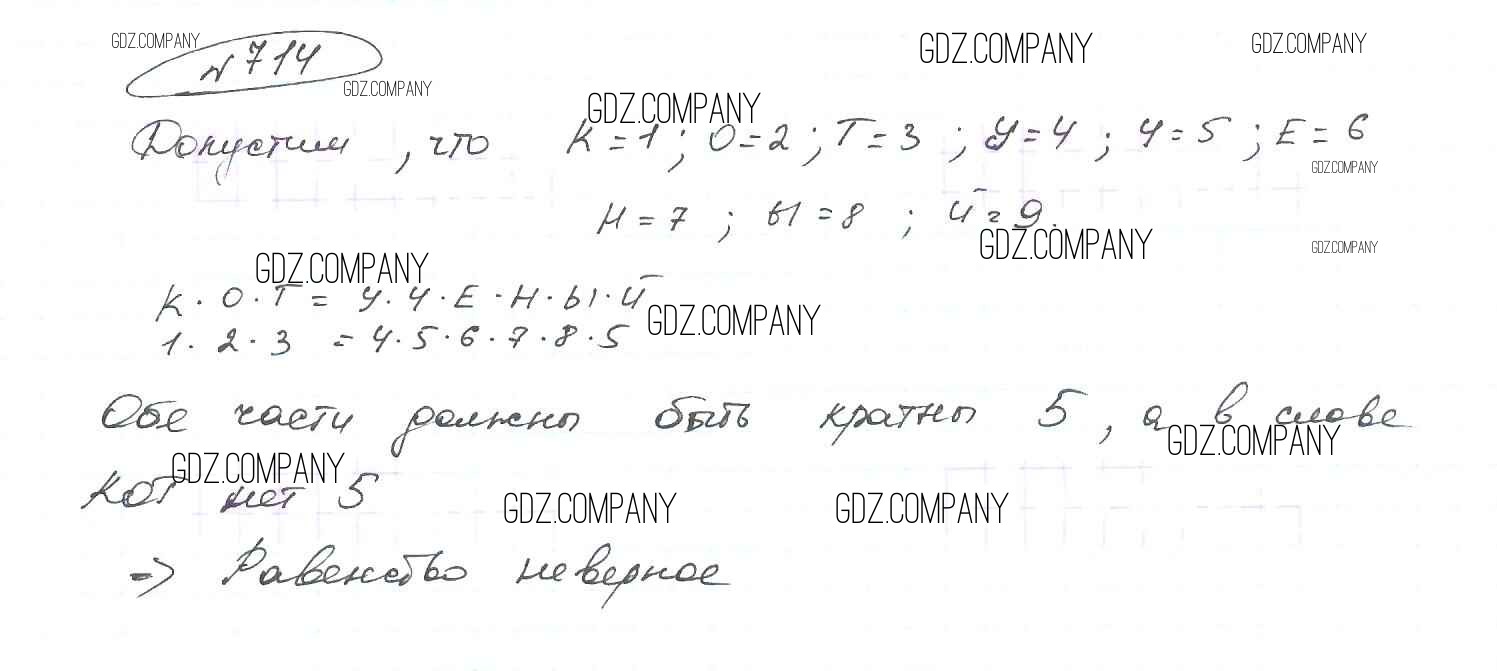 GDZ.COMPANY
№714
GDZ.COMPANY
GDZ.COMPANY
GDZ.COMPANY
GDZ.COMPANY
Допустим, что К=1; О=2; Т=3; У=4; Ч=5; Е=6
GDZ.COMPANY
Н=7; Ы=8; Й=9.
GDZ.COMPANY
GDZ.COMPANY
GDZ.COMPANY
К·О·Т = У·Ч·Е·Н·Ы·Й
GDZ.COMPANY
1·2·3 = 4·5·6·7·8·5
Обе части должны быть кратны 5, а в слове
GDZ.COMPANY
GDZ.COMPANY
КОТ нет 5
GDZ.COMPANY
GDZ.COMPANY
=> Равенство неверное